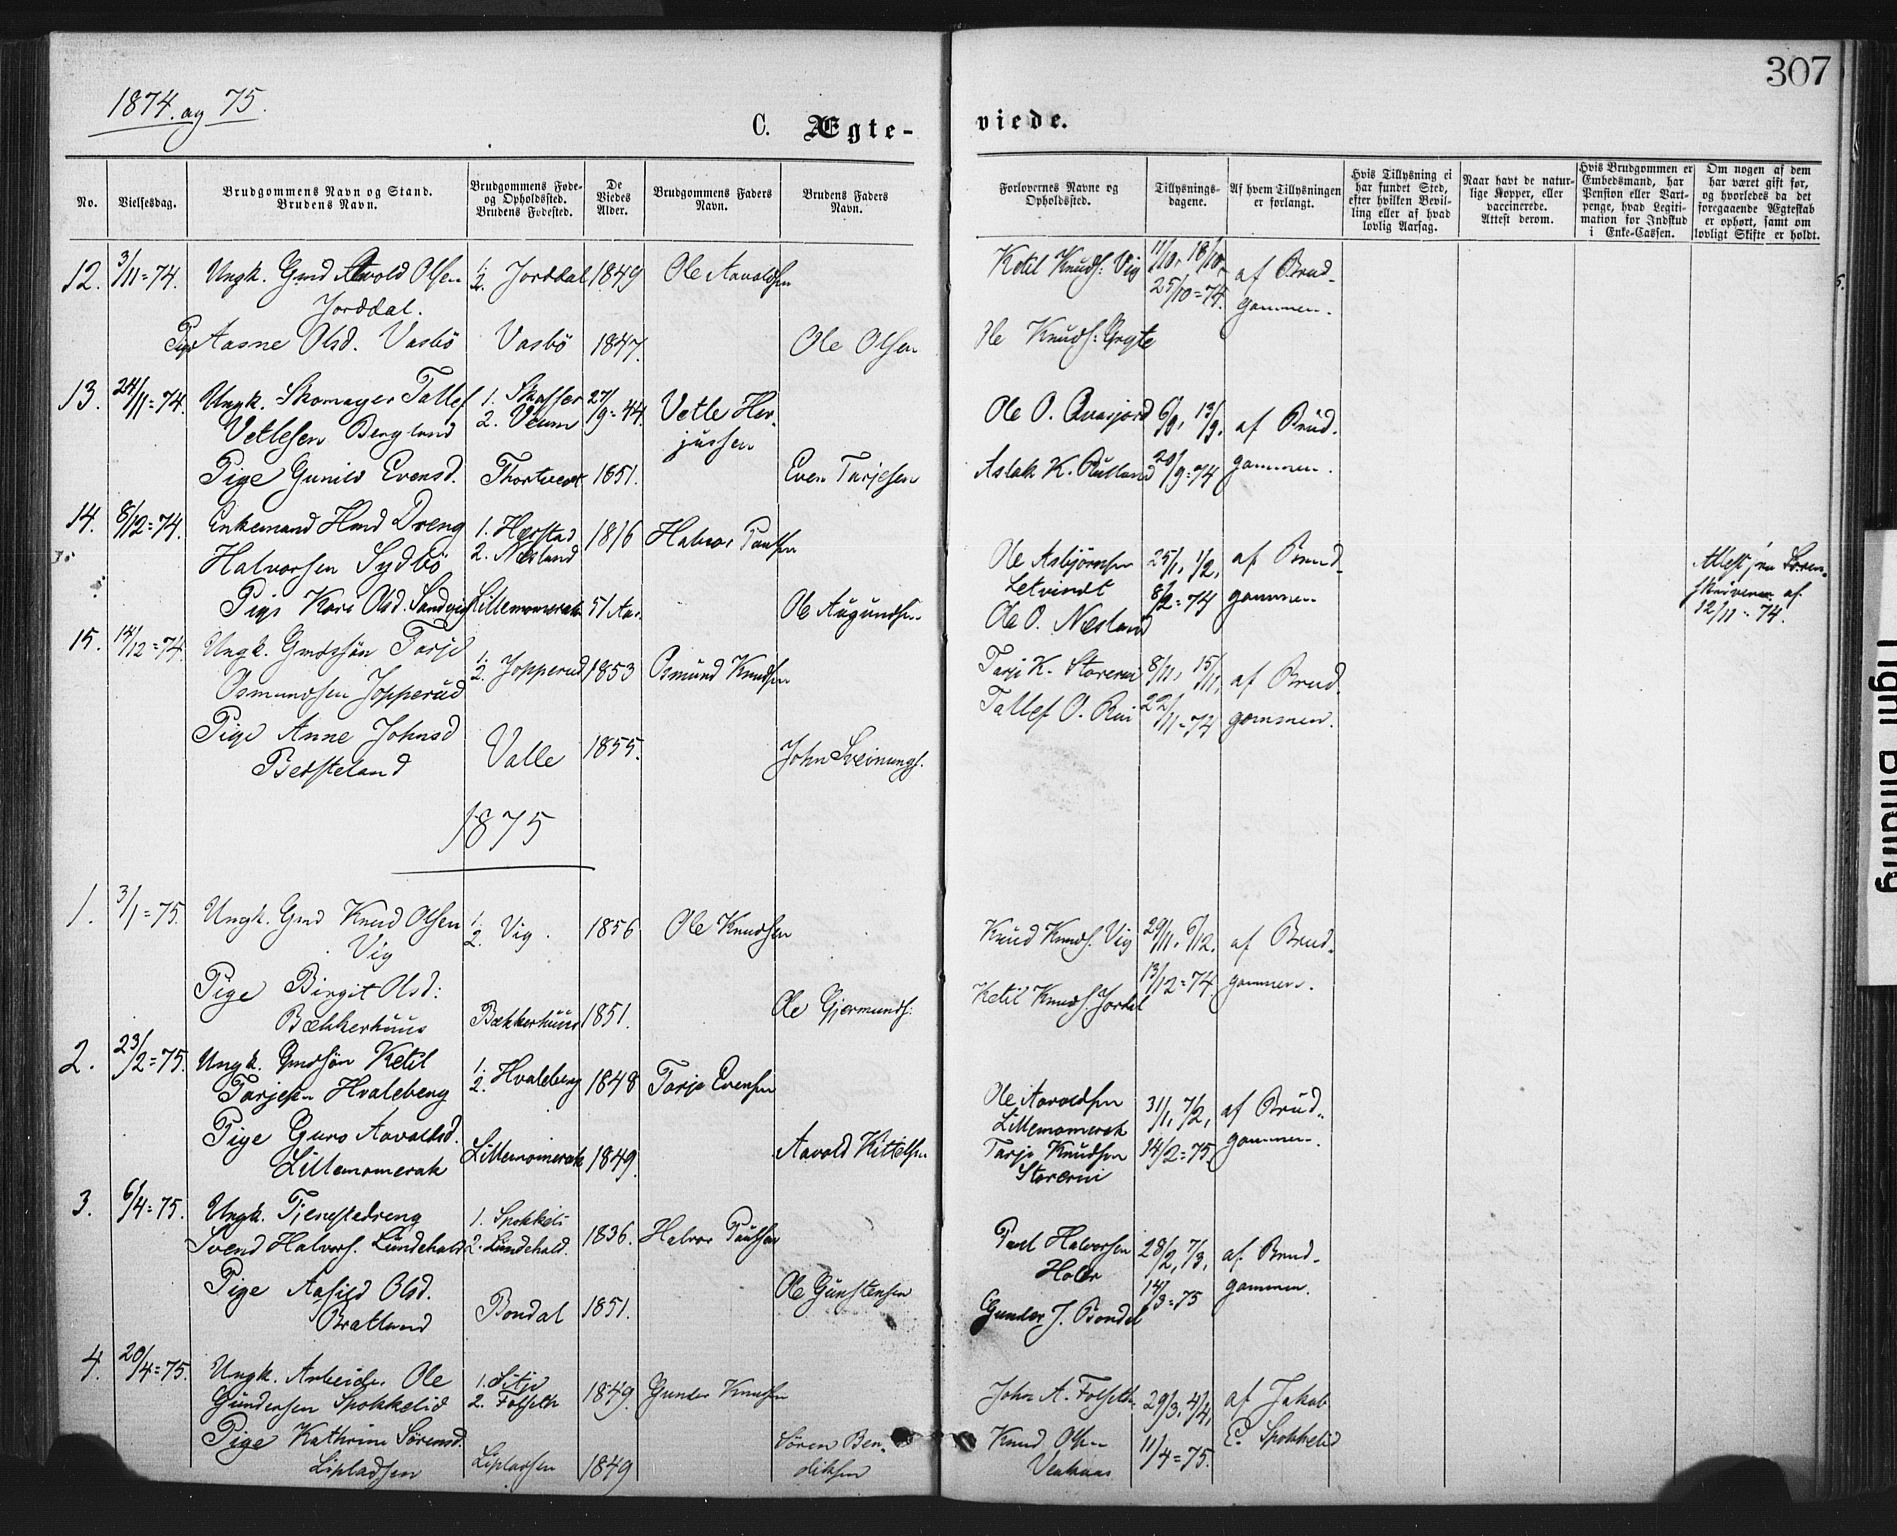 307
1874. og 75.
C. Ægte-
viede.
No.
Vielsesdag.
Brudgommens Navn og Stand.
Brudens Navn.
Brudgommens Føde-
og Opholdssted.
Brudens Fødested.
De
Viedes
Alder.
Brudgommens Faders
Navn.
Brudens Faders
Navn.
Forlovernes Navne og
Opholdssted.
Tillysnings-
dagene.
Af hvem Tillysningen
er forlangt.
Hvis Tillysning ei
har fundet Sted,
efter hvilken Bevil-
ling eller af hvad
lovlig Aarsag.
Naar havt de natur-
lige Kopper, eller
vaccinerede.
Attest derom.
Hvis Brudgommen er
Embedsmand, har
Pension eller Vart-
penge, hvad Legiti-
mation for Indskud
i Enke-Cassen.
Om nogen af dem
har været gift før,
og hvorledes da det
foregaaende Ægteskab
er ophørt, samt om
lovligt Skifte er holdt.
12. 3/11=74. Ungk. Gmd Aavold Olsen 1. 2. Jorddal 1849 Ole Aavoldsen Ketil Knuds: Vig 11/10, 18/10, af Brud-
Jorddal. 25/10=74. gommen.
Pige Aasne Olsd. Vasbö Vasbö 1847. Ole Olsen Ole Knuds:
13. 24/11=74. Ungk. Skomager Tallef 1. 27/9=44. Vetle Her- Ole O. 6/9, 13/9, af Brud-
Vetlesen Bergland 2. Veum jussen
Pige Gunild Evensd. 1851. Even Tarjesen Aslak K. Rutland 20/9=74 gommen.
14. 8/12=74. Enkemand Hmd Dreng 1. Harstad 1816 Halvor Paulsen Ole Asbjörnsen 25/1, 1/2, af Brud-
Halvorsen Sydbö 2. Næsland Letvindt 8/2=74 gommen Attest fra
Pige Kari Olsd. Sandvig Lillemomerak 51 Aar. Ole Augundsen Ole O. Næsland af 12/11=74.
15. 14/12=74. Ungk. Gmdssön Tarje 1. 2. Jopperud 1853 Osmund Knudsen Tarje K. 8/11, 15/11, af Brud-
Osmundsen Jopperud Tallef O. Rui 22/11=74 gommen.
Pige Anne Johnsd Valle 1855. John Sveinungs.
Berfteland
1875
1. 3/1=75. Ungk. Gmd Knud Olsen 1. 2. Vig. 1856 Ole Knudsen Knud Knuds. Vig 29/11, 6/12. af Brud-
Vig 13/12=74 gommen.
Pige Birgit Olsd: Bækkerhuus 1851. Ole Gjermunds: Ketil Knuds Jordal
Bækkerhuus
2. 23/2=75. Ungk. Gmdsön Ketil 1. 2. Hvaleberg 1848 Tarje Evensen Ole Aavoldsen 31/1, 7/2, af Brud-
Tarjesen Hvaleberg Lillemomerak
Pige Guro Aavoldsd. Lillemomerak 1849. Aavold Kittelsen Tarje Knudsen 14/2=75 gommen.
Lillemomerak
3. 6/4=75. Ungk. Tjenestedreng 1. Spokkeli 1836. Halvor Paulsen Paul Halvorsen 28/2, 7/3, af Brud-
Svend Halvors. Lundehald 2. Lundehald.
Pige Aasild Olsd. Bondal 1851. Ole Gunstensen 14/3=75 gommen.
Bratland Gunder J. Bondal
4. 20/4=75. Ungk. Arbeider Ole 1. 1849. Gunder Knudsen John A. Folseth 29/3, 4/4, af Jakob
Gundersen Spokkelid 2. Folseth
Pige Kathrine Sörensd. 1849 Sören Ben- Knud Olsen 11/4=75. E. Spokkelid
Lipladsen Lipladsen diksen